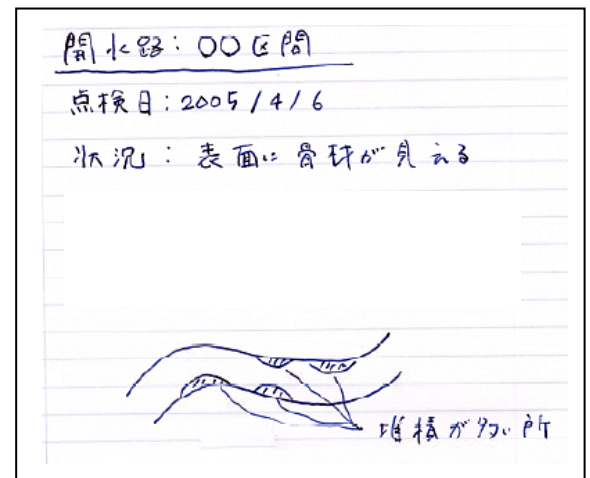 開水路：〇〇区間
点検日：2005/4/6
状況：表面に骨材が見える
堆積が多い所